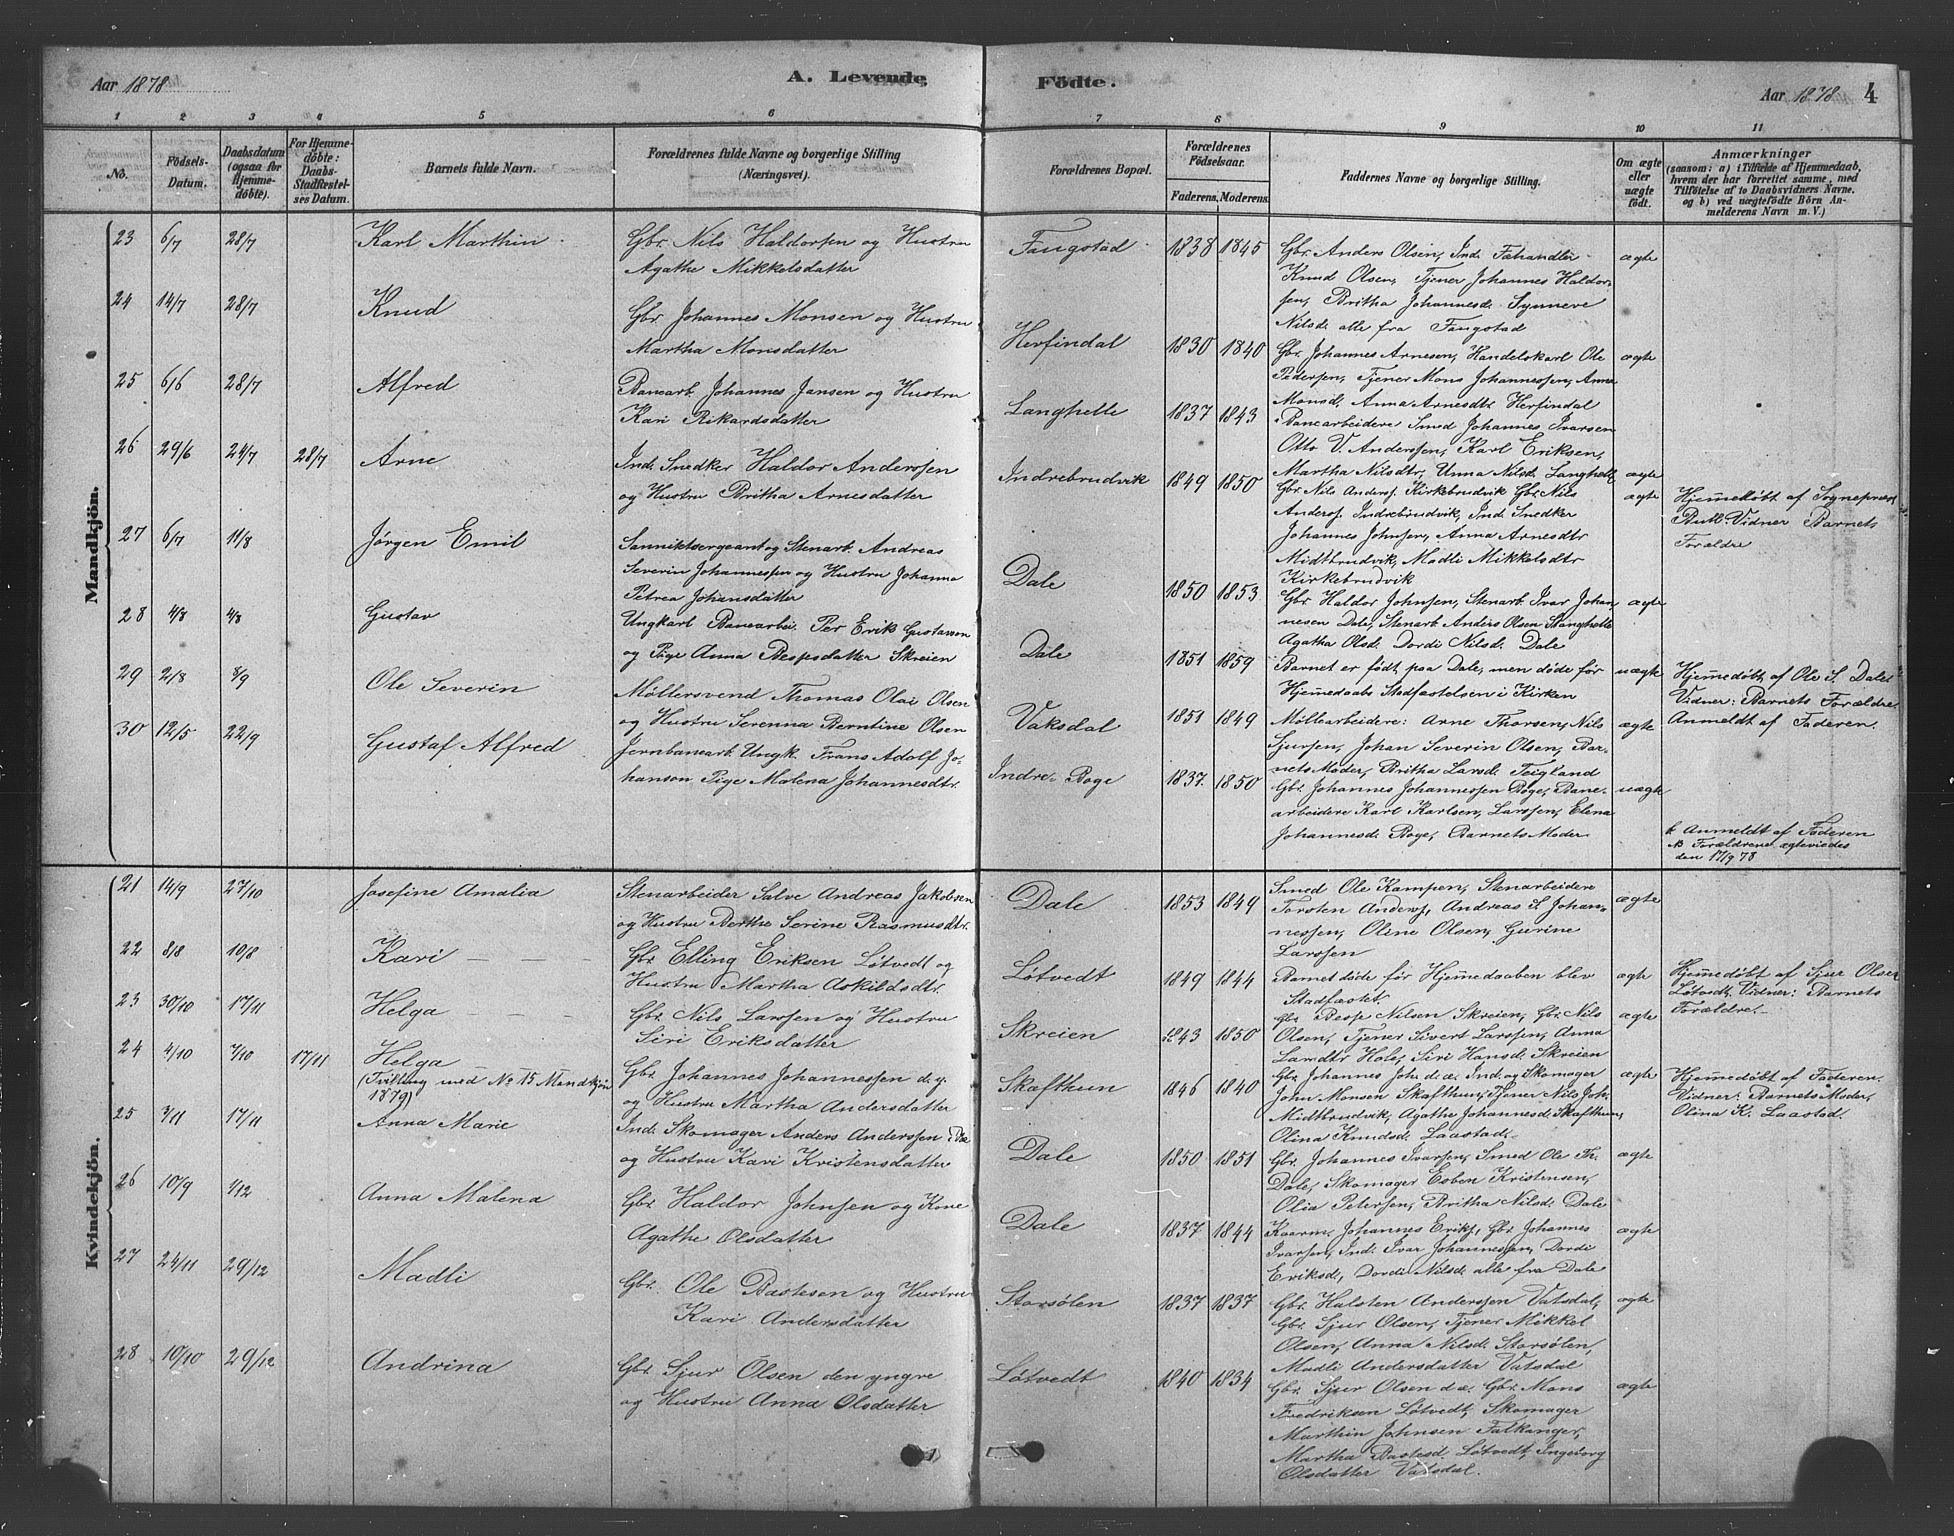 Aar 1878
A. Levende
Födte.
Aar 1878
4
1 2 3 4 5 6 7 8 9 10 11
No.
Födsels-Datum.
Daabsdatum (ogsaa for Hjemmedöbte).
For Hjemmedöbte: Daabs-Stadfæstelses Datum.
Barnets fulde Navn.
Forældrenes fulde Navne og borgerlige Stilling (Næringsvei).
Forældrenes Bopæl.
Forældrenes Födselsaar.
Faderens. Moderens.
Faddernes Navne og borgerlige Stilling.
Om ægte eller uægte födt.
Anmærkninger
(saasom: a) i Tilfælde af Hjemmedaab,
hvem der har forrettet samme, med
Tilföielse af to Daabsvidners Navne.
og b) ved uægtefödte Börn An-
melderens Navn m. V.)
Mandkjön.
23 6/7 28/7 Karl Marthin
Gbr. Nils Haldorsen og Hustru
Agathe Mikkelsdatter
Fangstad 1838 1845
Gbr. Anders Olsen, Ind. Fahandler
Knud Olsen, Tjener Johannes Haldor-
sen, Britha Johannesd. Synneve
Nilsd. alle fra Fangstad
ægte
24 14/7 28/7 Knud
Gbr. Johannes Monsen og Hustru
Martha Monsdatter
Herfindal 1830 1840
Gbr. Johannes Arnesen, Handelskarl Ole
Pedersen, Tjener Mons Johannessen, Anna
Monsd. Anna Arnesdt. Herfindal
ægte
25 6/6 28/7 Alfred
Banearb. Johannes Jansen og Hustru
Kari Rikardsdatter
Langhelle 1837 1843
Banearbeidere Smed Johannes Ivarsen
Otto V. Anderssen, Karl Eriksen,
Martha Nilsdtr, Unna Nilsd. Langhelle
ægte
26 29/6 24/7 28/7 Arne
Ind. Snedker Haldor Anderssen
og Hustru Britha Arnesdatter
Indrebrudvik 1849 1850
Gbr. Nils Anders. Kirkebrudvik Gbr. Nils
Anders. Indrebrudvik, Ind. Snedker
Johannes Johnsen, Anna Arnesdtr
Midtbrudvik, Madli Mikkelsdtr
Kirkebrudvik
ægte
Hjemmedøbt af Sognepræst
Vidner Barnets
Forældre
27 6/7 11/8 Jørgen Emil
og Stenarb. Andreas
Severin Johannessen og Hustru Johanna
Petrea Johansdatter
Dale 1850 1853
Gbr. Haldor Johnsen, Stenarb. Ivar Johan-
nesen Dale, Stenarb. Anders Olsen Stanghelle
Agatha Olsd. Dordi Nilsd. Dale
ægte
28 4/8 4/8 Gustav
Ungkarl Banearbei. Per Erik Gustavson
og Pige Anna Bespsdatter Skreien
Dale 1851 1859
Barnet er født paa Dale, men døde før
Hjemmedaabs Stadfæstelsen i Kirken
uægte
Hjemmedøbt af Ole S. Dale
Vidner: Barnets Forældre.
Anmeldt af Faderen.
29 2/8 8/9 Ole Severin
Møllersvend Thomas Olai Olsen
og Hustru Serenna Berntine Olsen
Vaksdal 1851 1849
Møllearbeidere: Arne Thorsen, Nils
Sjursen, Johan Severin Olsen, Bar-
nets Moder, Britha Larsd. Teigland
ægte
30 12/5 22/9 Gustaf Alfred
Jernbanearb. Ungk. Frans Adolf Jo-
hanson Pige Malena Johannesdtr.
Indre Boge 1837. 1850
Gbr. Johannes Johannessen Boge, Bane-
arbeidere Karl Karlsen, Larssen, Elena
Johannesd. Boge, Barnets Moder
uægte
b Anmeldt af Faderen
Forældrene ægteviedes
den 17/9 78
Kvindekjön.
21 14/9 27/10 Josefine Amalia
Stenarbeider Salve Andreas Jakobsen
og Hustru Berthe Serine Rasmusdtr.
Dale 1853 1849
Smed Ole Kampen, Stenarbeidere
Torsten Anders, Andreas S. Johan-
nessen, Oline Olsen, Gurine
Larssen
ægte
22 8/8 10/8 Kari
Gbr. Elling Eriksen Løtvedt og
Hustru Martha Askildsdtr.
Løtvedt 1849 1844
Barnet døde før Hjemmedaaben blev
Stadfæstet.
ægte
Hjemmedøbt af Sjur Olsen
Løtvedt, Vidner: Barnets
Forældre.
23 30/10 17/11 Helga
Gbr. Nils Larssen og Hustru
Siri Eriksdatter
Skreien 1843 1850
Gbr. Besse Nilsen Skreien, Gbr. Nils
Olsen, Tjener Sivert Larssen, Anna
Hole, Siri Hansd. Skreien
ægte
24 4/10 7/10 17/11 Helga
(Tvilling med No 15 Mandkjøn
1879)
Gbr. Johannes Johannessen d. y.
og Hustru Martha Andersdatter
Skafthun 1846 1840
Gbr. Johannes Joh. d. æ. Ind. og Skomager
John Monsen Skafthun, Tjener Nils Joh.
Midtbrudvik, Agathe Johannesd. Skafthun,
Olina Knudsd. Laastad.
ægte
Hjemmedøbt af Faderen.
Vidner: Barnets Moder,
Olina K. Laastad.
25 3/11 17/11 Anna Marie
Ind. Skomager Anders Anderssen i Dale
og Hustru Kari Kristensdatter
Dale 1850 1851
Gbr. Johannes Ivarsen, Smed Ole Th.
Dale, Skomager Esben Kristensen,
Olia Petersen, Britha Nilsd. Dale
ægte
26 10/9 1/12 Anna Malena
Gbr. Haldor Johnsen og Kone
Agathe Olsdatter
Dale 1837 1844
Kaarm. Johannes Eriks, Gbr. Johannes
Ivarsen, Ind. Ivar Johannessen, Dordi
Eriksd, Dordi Nilsd. alle fra Dale
ægte
27 24/11 29/12 Madli
Gbr. Ole Bastesen og Hustru
Kari Andersdatter
Storsølen 1837 1837
Gbr. Halsten Anderssen Vatsdal,
Gbr. Sjur Olsen, Tjener Mikkel
Olsen, Anna Nilsd. Storsølen,
Madli Andersdatter Vatsdal
ægte
28 10/10 29/12 Andrina
Gbr. Sjur Olsen den yngre
og Hustru Anna Olsdatter
Løtvedt 1840 1834
Gbr. Sjur Olsen d. æ. Gbr. Mons
Fredriksen Løtvedt, Skomager
Marthin Johnsen Falkanger,
Martha Bastesd Løtvedt, Ingeborg
Olsdatter Vatsdal.
ægte